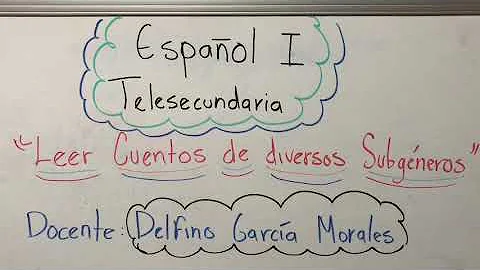 Español I
Telesecundaria
"Leer Cuentos de diversos Subgéneros"
Docente: Delfino García Morales